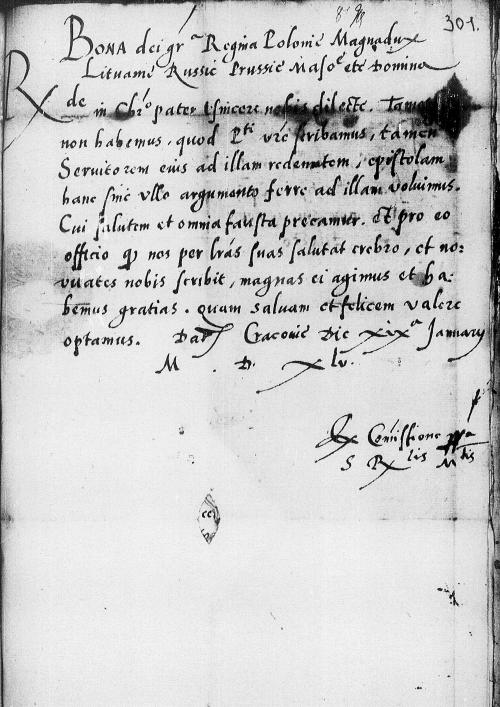 301.
BONA dei gr̃a Regina Polonie Magnadux
Lituanie Russie Prussie Maso^e etc Domina
Rde in Chr̃o pater sincere nobis dilecte. Tam
non habemus, quod P^ti vr̃e scribamus, tamen
Servitorem eius ad illam redeuntem, epistolam
hanc sine vllo argumento ferre ad illam voluimus.
Cui salutem et omnia fausta precamur. Et pro eo
officio q nos per lr̃as suas salutat crebro, et no:
vitates nobis scribit, magnas ei agimus et ha:
bemus gratias. quam salvam et felicem valere
optamus. Dat Cracovie Die xix^a January
M . D. xlv.
Ex Comissione ppa
S R^lis M^tis